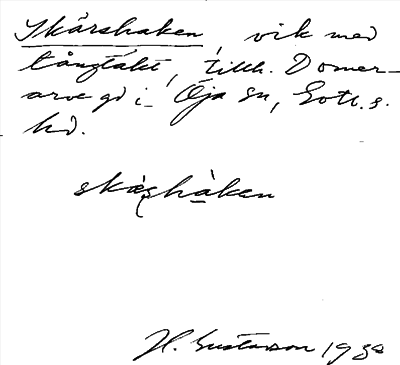 Skärshaken, vik med
tångtäkt, tillh. Domer-
arve gd i Öja sn, Gotl. s.
hd.
skäshàken
H. Gustavson 1930